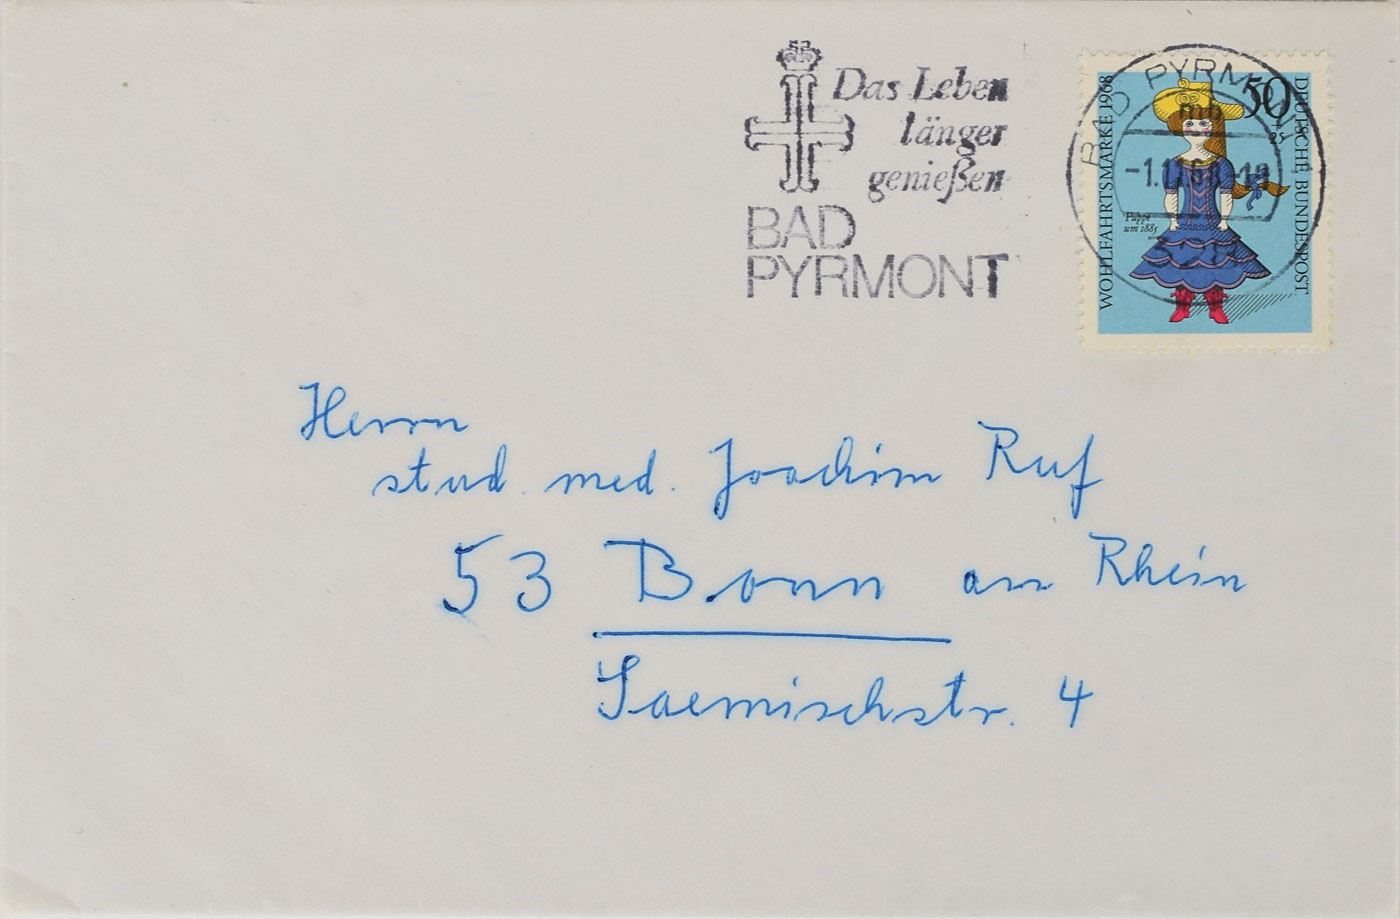 Das Leben
länger
genießen
BAD
PYRMONT
BAD PYRMONT
mb
50
+
25
WOHLFAHRTSMARKE 1968
DEUTSCHE BUNDESPOST
Puppe
um 1885
Herrn
stud. med. Joachim Ruf
53 Bonn am Rhein
Saemischstr. 4